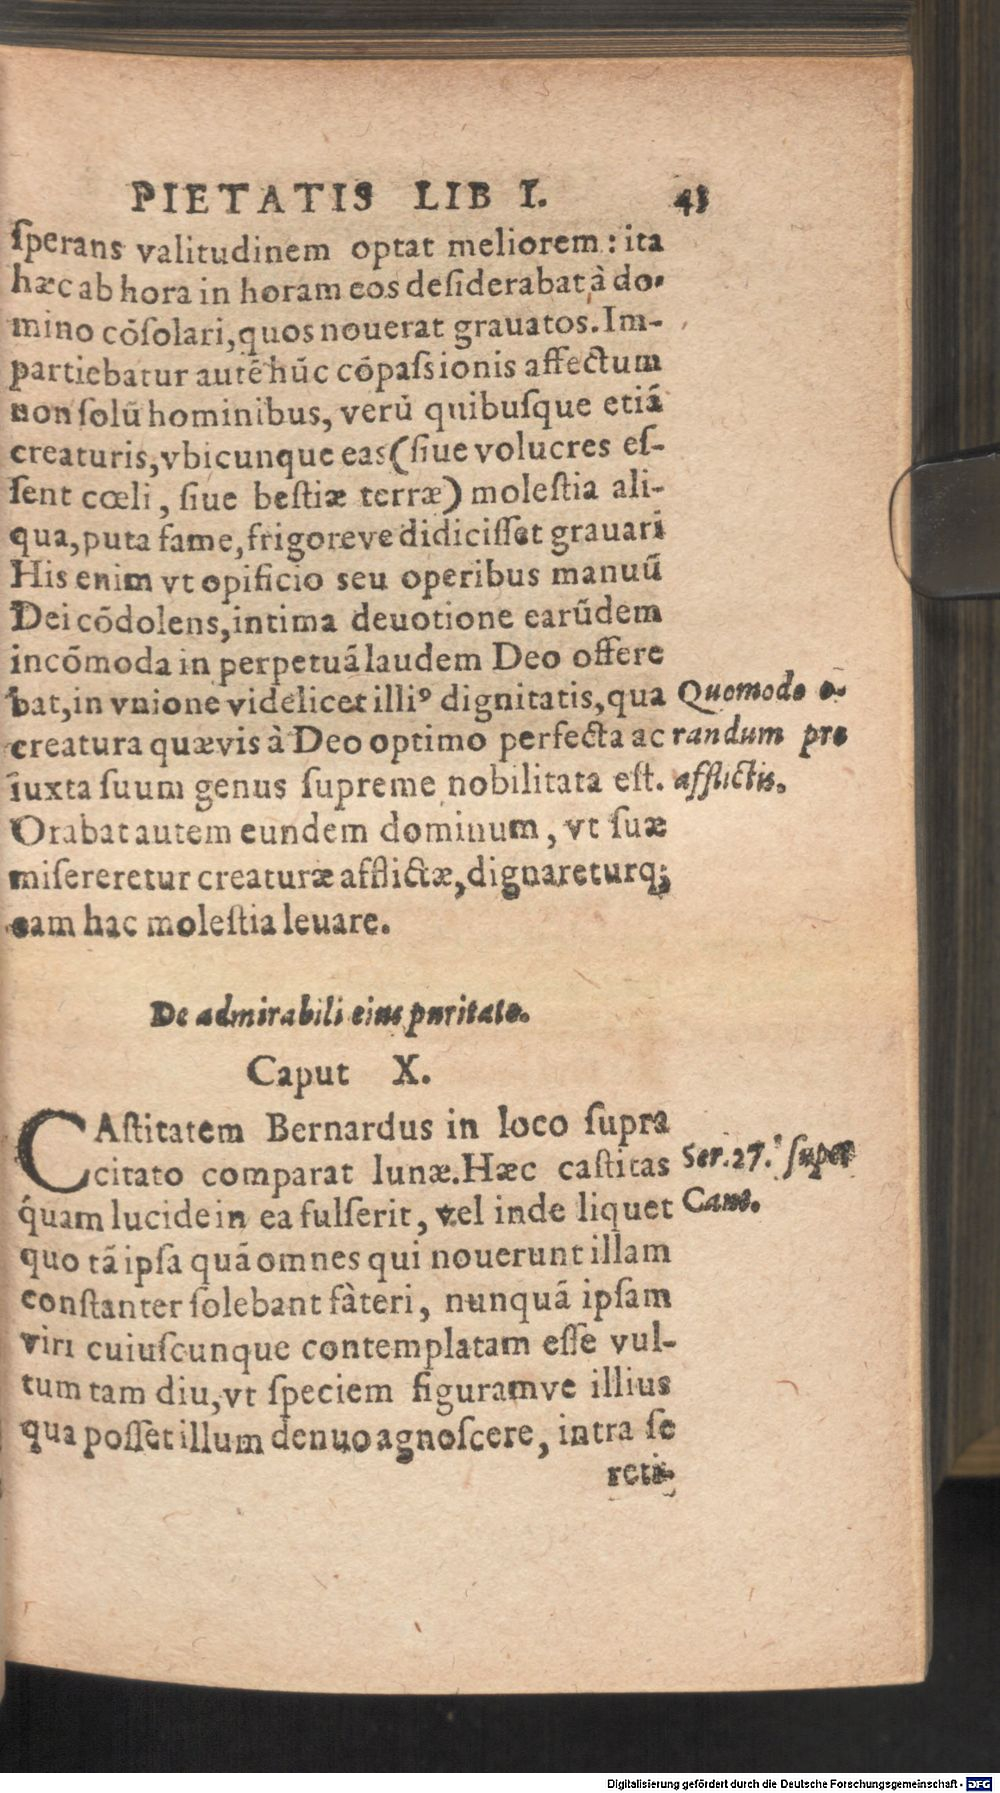 PIETATIS LIB I. 43
ſperans valitudinem optat meliorem: ita
hæc ab hora in horam eos deſiderabat à do-
mino cõſolari, quos nouerat grauatos. Im-
partiebatur autẽ hũc cõpaſsionis affectum
non ſolũ hominibus, verũ quibuſque etiã
creaturis, vbicunque eas (ſiue volucres eſ-
ſent cœli, ſiue beſtiæ terræ) moleſtia ali-
qua, puta fame, frigoreve didiciſſet grauari
His enim vt opificio seu operibus manuũ
Dei cõdolens, intima deuotione earũdem
incõmoda in perpetuã laudem Deo offere
bat, in vnione videlicet illiꝰ dignitatis, qua
Quomodo o-
creatura quævis à Deo optimo perfecta ac
randum pro
iuxta ſuum genus ſupreme nobilitata eſt.
afflictis.
Orabat autem eundem dominum, vt ſuæ
miſereretur creaturæ afflictæ, dignareturq;
eam hac moleſtia leuare.
De admirabili eius puritate.
Caput X.
CAſtitatem Bernardus in loco ſupra
citato comparat lunæ. Hæc caſtitas
Ser. 27. ſuper
quam lucide in ea fulſerit, vel inde liquet
Cant.
quo tã ipſa quã omnes qui nouerunt illam
conſtanter ſolebant fàteri, nunquã ipſam
viri cuiuſcunque contemplatam eſſe vul-
tum tam diu, vt ſpeciem figuramve illius
qua poſſet illum denuo agnoſcere, intra ſe
reti-
Digitalisierung gefördert durch die Deutsche Forschungsgemeinschaft - DFG